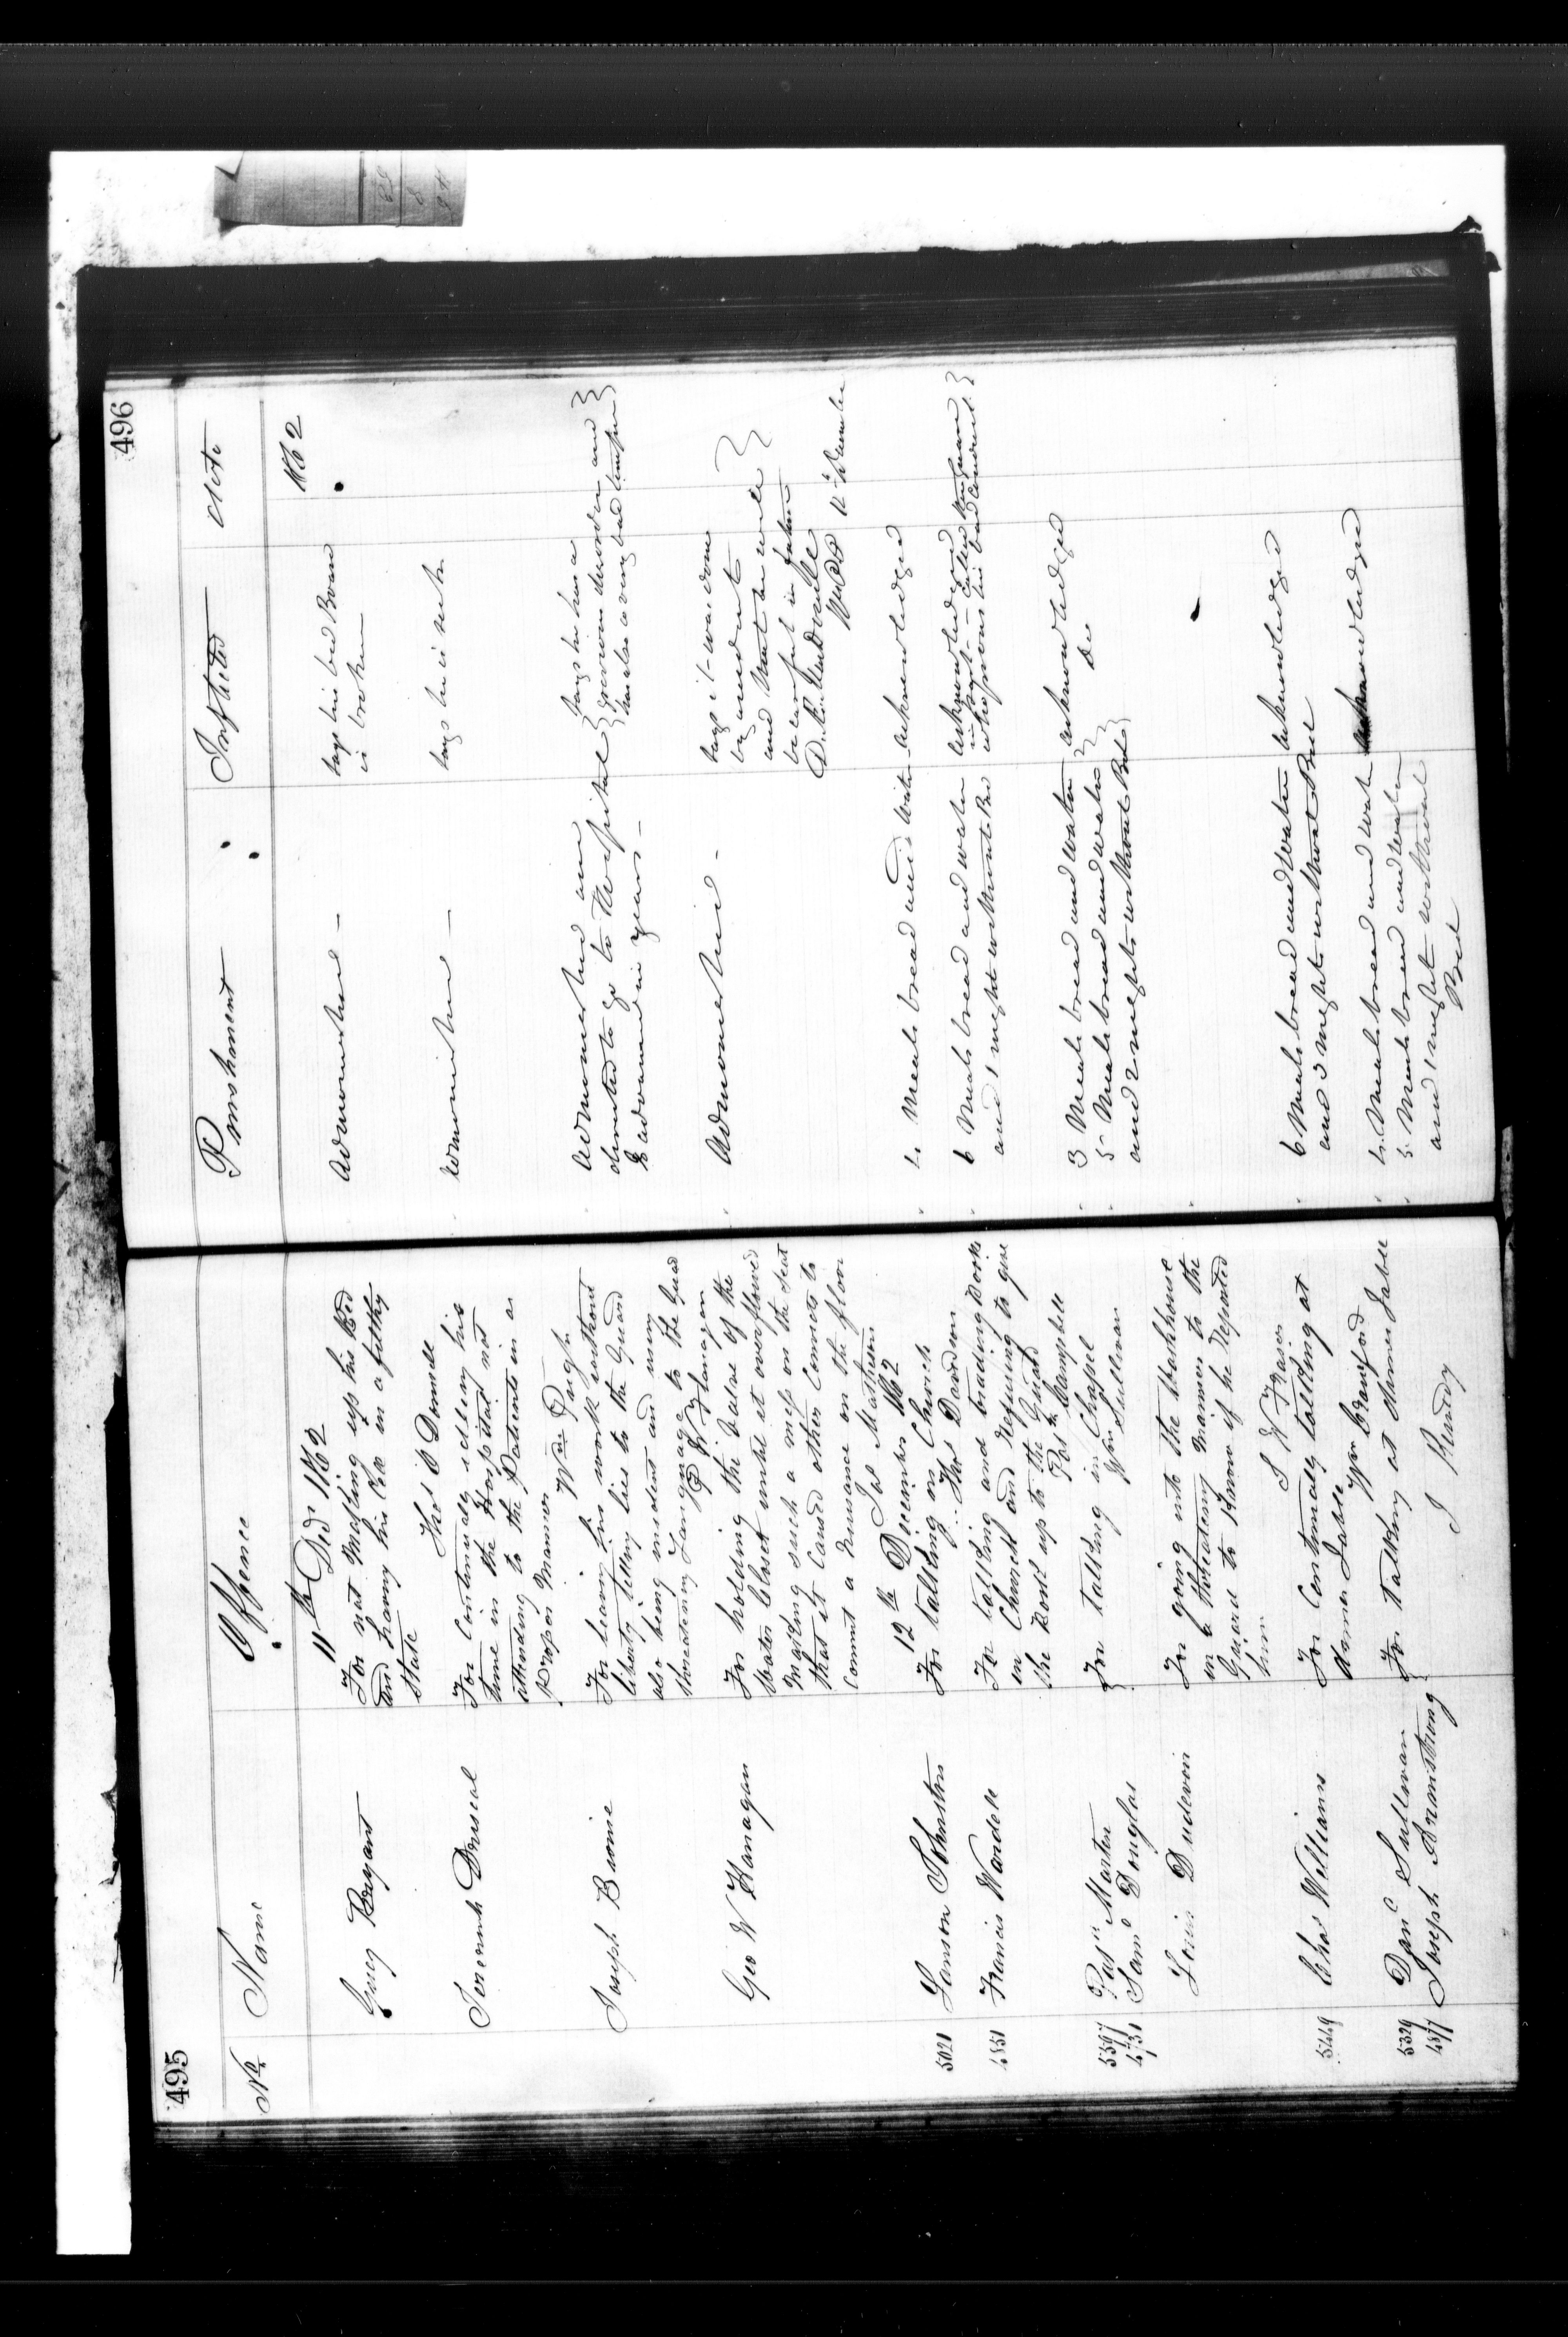 495
No. Name Offence
11th Decr 1862
Guey Bryant
For not Making up his Bed
and having his Cell in a filthy
State
Thos O Donnell
Jeremiah Driscal
For Continually idling his
time in the Hospital not
attending to the Patients in a
Proper Manner
Wm Pugh
Joseph Birnie
For leaving his work without
liberty telling lies to the Guard
also being insolent and using
threatening Language to the Guard
R W Flanagan
Geo W Flanagan
For holding the Valve of the
Water Closet until it overflowed
Making such a mess on the Seat
that it Caused other Convicts to
Commit a Nuisance on the floor
Jas Matheson
12th December 1862
5021 Lanson Johnston
For talking in Church
Thos Davidson
4551 Francis Wardell
For talking and trading Books
in Church and Refusing to give
the Book up to the Guard
Patk Campbell
5397 Pat Martin
4731 Saml Douglas
For talking in Chapel
Wm Sullivan
Louis Dudevoir
For going into the Washhouse
in a threatening Manner to the
Guard to Know if he Reported
him
S W Frasier
5449 Chas Williams
For Continually talking at
dinner Table
Wm Crawford
5329 Danl Sullivan
4877 Joseph Armstrong
For talking at dinner Table
J Kennedy
496
Punishment Inflicted Date
1862
Admonished -
Says his bed Board
is broken
Admonished -
Says he is sick
Admonished and
directed to go to Hospital
Says he has a
grievous disorder and
has also a very bad temper
Admonished -
Says it was done
by accident
and that he will
be careful in future
D. Æ. Macdonell
Warden 12 December
4 Meals bread and Water acknowledged
6 Meals bread and water acknowledged
and 1 night without Bed
3 Meals bread and water acknowledged
5 Meals bread and water Do
and 2 nights without Bed
6 Meals bread and Water acknowledged
and 3 nights without Bed
4 Meals bread and Water acknowledged
5 Meals bread and Water
and 1 night without
Bed